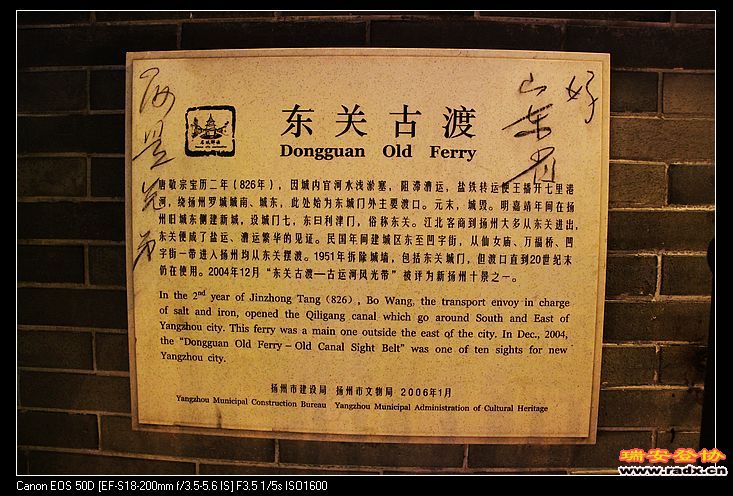 东关古渡
Dongguan Old Ferry
唐敬宗宝历二年（826年），因城内官河水浅淤塞，阻滞漕运，盐铁转运使王播开七里港
河，绕扬州罗城城南、城东，此处始为东城门外主要渡口。元末，城毁。明嘉靖年间在扬
州旧城东侧建新城，设城门七，东曰利津门，俗称东关。江北客商到扬州大多从东关进出，
东关便成了盐运、漕运繁华的见证。民国年间建城区东至凹字街，从仙女庙、万福桥、凹
字街一带进入扬州均从东关摆渡。1951年拆除城墙，包括东关城门，但渡口直到20世纪末
仍在使用。2004年12月“东关古渡—古运河风光带”被评为新扬州十景之一。
In the 2nd year of Jinzhong Tang (826), Bo Wang, the transport envoy in charge
of salt and iron, opened the Qiligang canal which go around South and East of
Yangzhou city. This ferry was a main one outside the east of the city. In Dec., 2004,
the “Dongguan Old Ferry – Old Canal Sight Belt” was one of ten sights for new
Yangzhou city.
扬州市建设局 扬州市文物局 2006年1月
Yangzhou Municipal Construction Bureau Yangzhou Municipal Administration of Cultural Heritage
好
山东省
兄弟
瑞安登协
www.radx.cn
Canon EOS 50D [EF-S18-200mm f/3.5-5.6 IS] F3.5 1/5s ISO1600